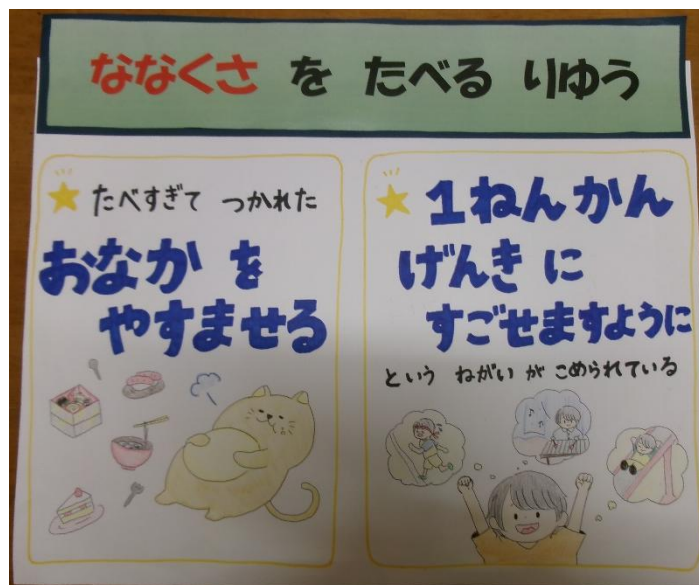 ななくさ を たべる りゆう
たべすぎて つかれた
おなか を
やすませる
1ねんかん
げんき に
すごせますように
という ねがい が こめられている